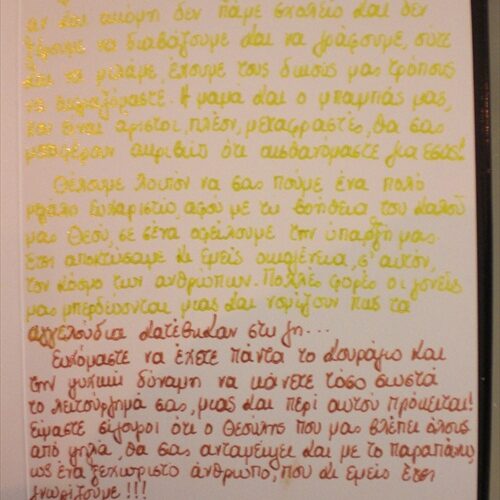 αν και ακόμη δεν πάμε σχολείο και δεν
ξέρουμε να διαβάζουμε και να γράφουμε, ούτε
και να μιλάμε, έχουμε τους δικούς μας τρόπους
να εκφραζόμαστε. Η μαμά και ο μπαμπάς μας,
που είναι άριστοι, πλέον, μεταφραστές, θα σας
μεταφέρουν ακριβώς ότι αισθανόμαστε για εσάς!
Θέλουμε λοιπόν να σας πούμε ένα πολύ
μεγάλο ευχαριστώ, αφού με τη βοήθεια του καλού
μας Θεού, σε σένα οφείλουμε την ύπαρξή μας.
Έτσι αποκτήσαμε κι εμείς οικογένεια, σ' αυτόν,
τον κόσμο των ανθρώπων. Πολλές φορές οι γονείς
μας μπερδεύονται μιας και νομίζουν πως τα
αγγελούδια κατέβηκαν στη γη...
Ευχόμαστε να έχετε πάντα το κουράγιο και
την ψυχική δύναμη να κάνετε τόσο σωστά
το λειτούργημά σας, μιας και περί αυτού πρόκειται!
Είμαστε σίγουροι ότι ο Θεούλης που μας βλέπει όλους
από ψηλά, θα σας ανταμείψει και με το παραπάνω,
ως ένα ξεχωριστό άνθρωπο, που κι εμείς έτσι
γνωρίζουμε!!!